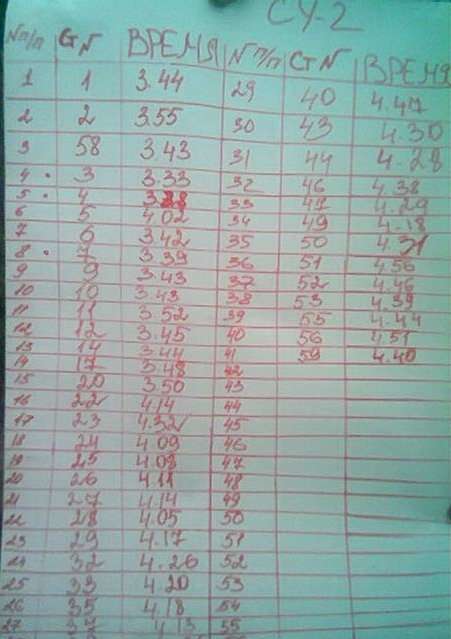 СУ-2
№п/п СТ№ ВРЕМЯ №п/п СТ№ ВРЕМЯ
1 1 3.44 29 40 4.47
2 2 3.55 30 43 4.30
3 58 3.43 31 44 4.28
4 3 3.33 32 46 4.38
5 4 33 47 4.29
6 5 4.02 34 49 4.18
7 6 3.42 35 50
8 7 3.39 36 51 4.56
9 9 3.43 37 52 4.46
10 10 3.43 38 53 4.39
11 11 3.52 39 55 4.44
12 12 3.45 40 56 4.51
13 14 3.44 41 59 4.40
14 17 3.48 42
15 20 3.50 43
16 22 4.14 44
17 23 4.32 45
18 24 4.09 46
19 25 4.08 47
20 26 4.11 48
21 27 4.14 49
22 28 4.05 50
23 29 4.17 51
24 32 4.26 52
25 33 4.20 53
26 35 4.18 54
27 37 4.13 55